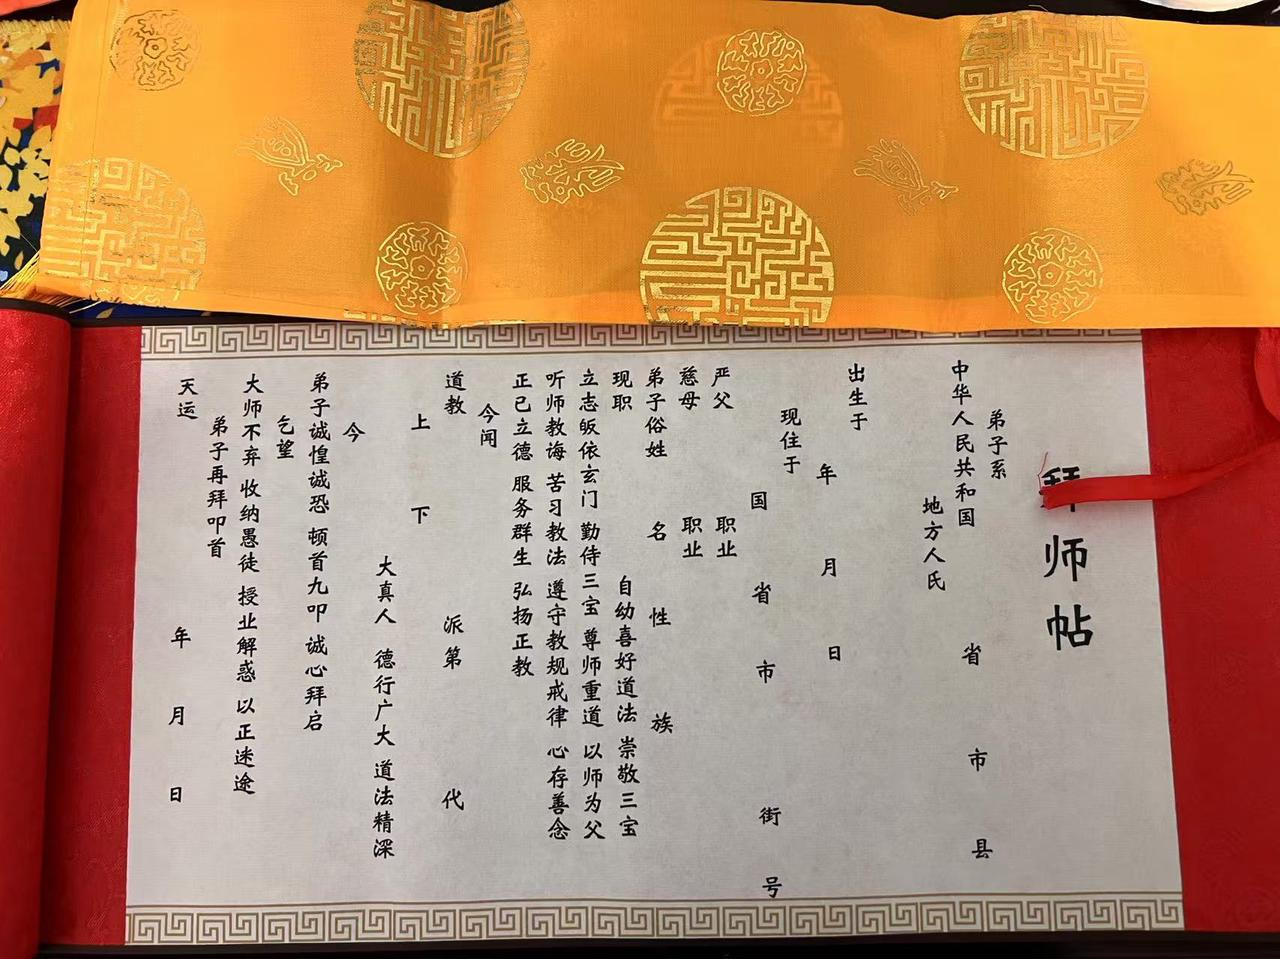 拜师帖
弟子系
中华人民共和国 省 市 县
地方人氏
出生于 年 月 日
现住于 国 省 市 街 号
严父 职业
慈母 职业
弟子俗姓 名 性 族
现职 自幼喜好道法 崇敬三宝
立志皈依玄门 勤侍三宝 尊师重道 以师为父
听师教诲 苦习教法 遵守教规戒律 心存善念
正己立德 服务群生 弘扬正教
今闻
道教 派第 代
上 下
大真人 德行广大 道法精深
今
弟子诚惶诚恐 顿首九叩 诚心拜启
乞望
大师不弃 收纳愚徒 授业解惑 以正迷途
弟子再拜叩首
天运 年 月 日